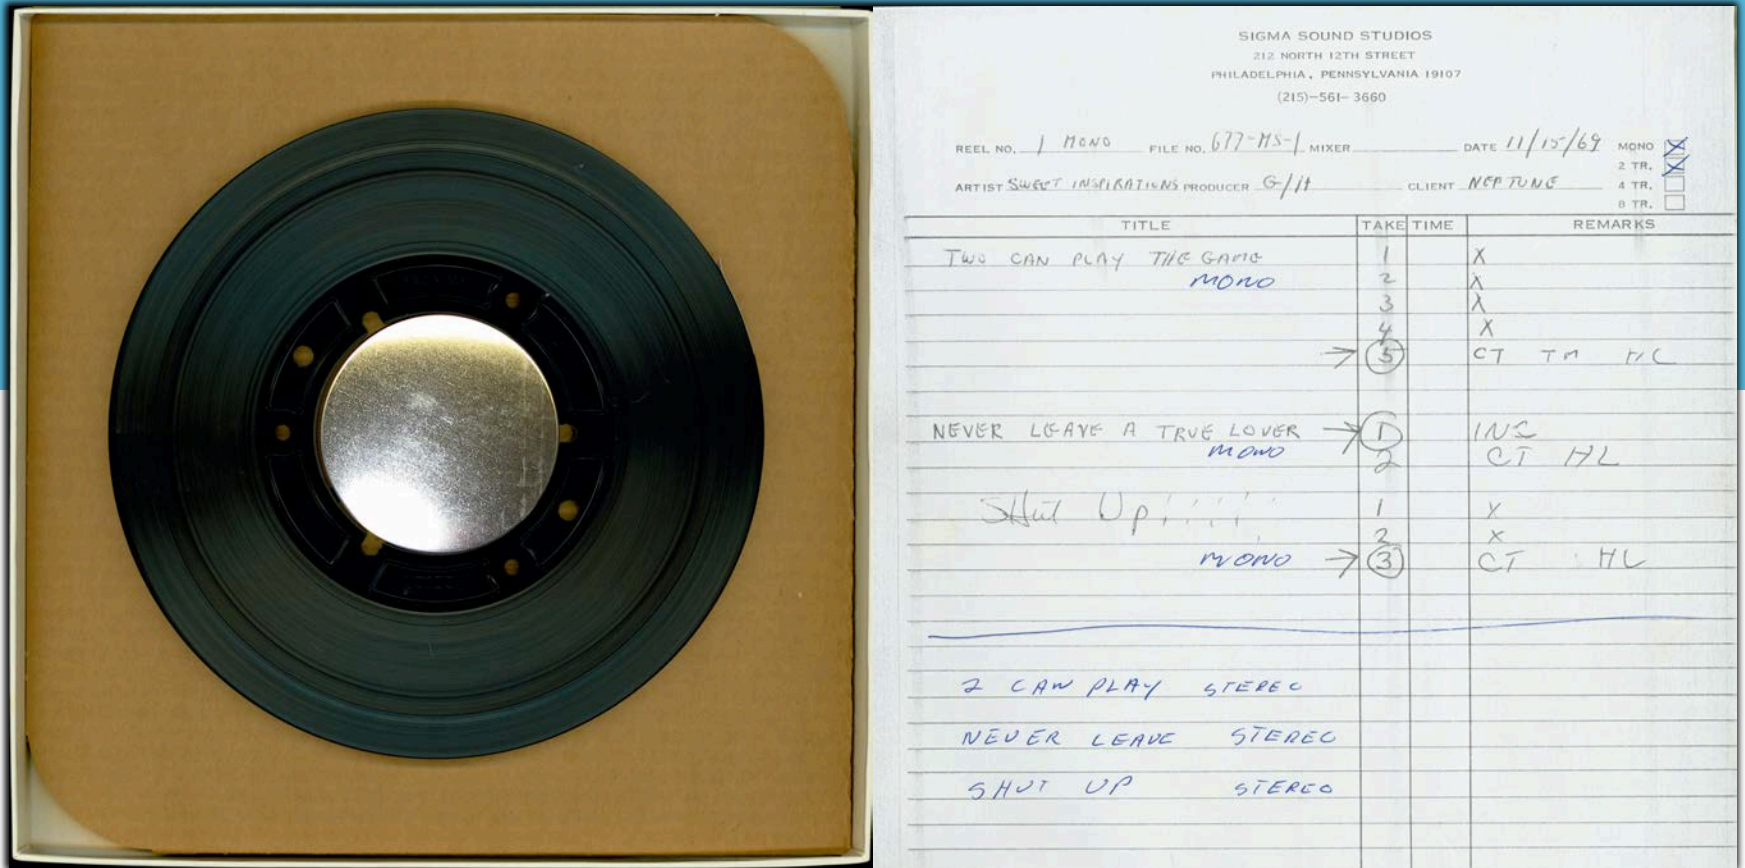 SIGMA SOUND STUDIOS
212 NORTH 12TH STREET
PHILADELPHIA, PENNSYLVANIA 19107
(215)-561-3660
REEL NO. 1 MONO FILE NO. 677-MS-1 MIXER DATE 11/15/69 MONO X
2 TR. X
ARTIST SWEET INSPIRATIONS PRODUCER G/H CLIENT NEPTUNE 4 TR.
8 TR.
TITLE TAKE TIME REMARKS
TWO CAN PLAY THE GAME 1 X
MONO 2 X
3 X
4 X
→ 5 CT TM
NEVER LEAVE A TRUE LOVER → 1 INS
MONO 2 CT HL
SHUT UP!!!!! 1 X
2 X
MONO → 3 CT HL
2 CAN PLAY STEREO
NEVER LEAVE STEREO
SHUT UP STEREO